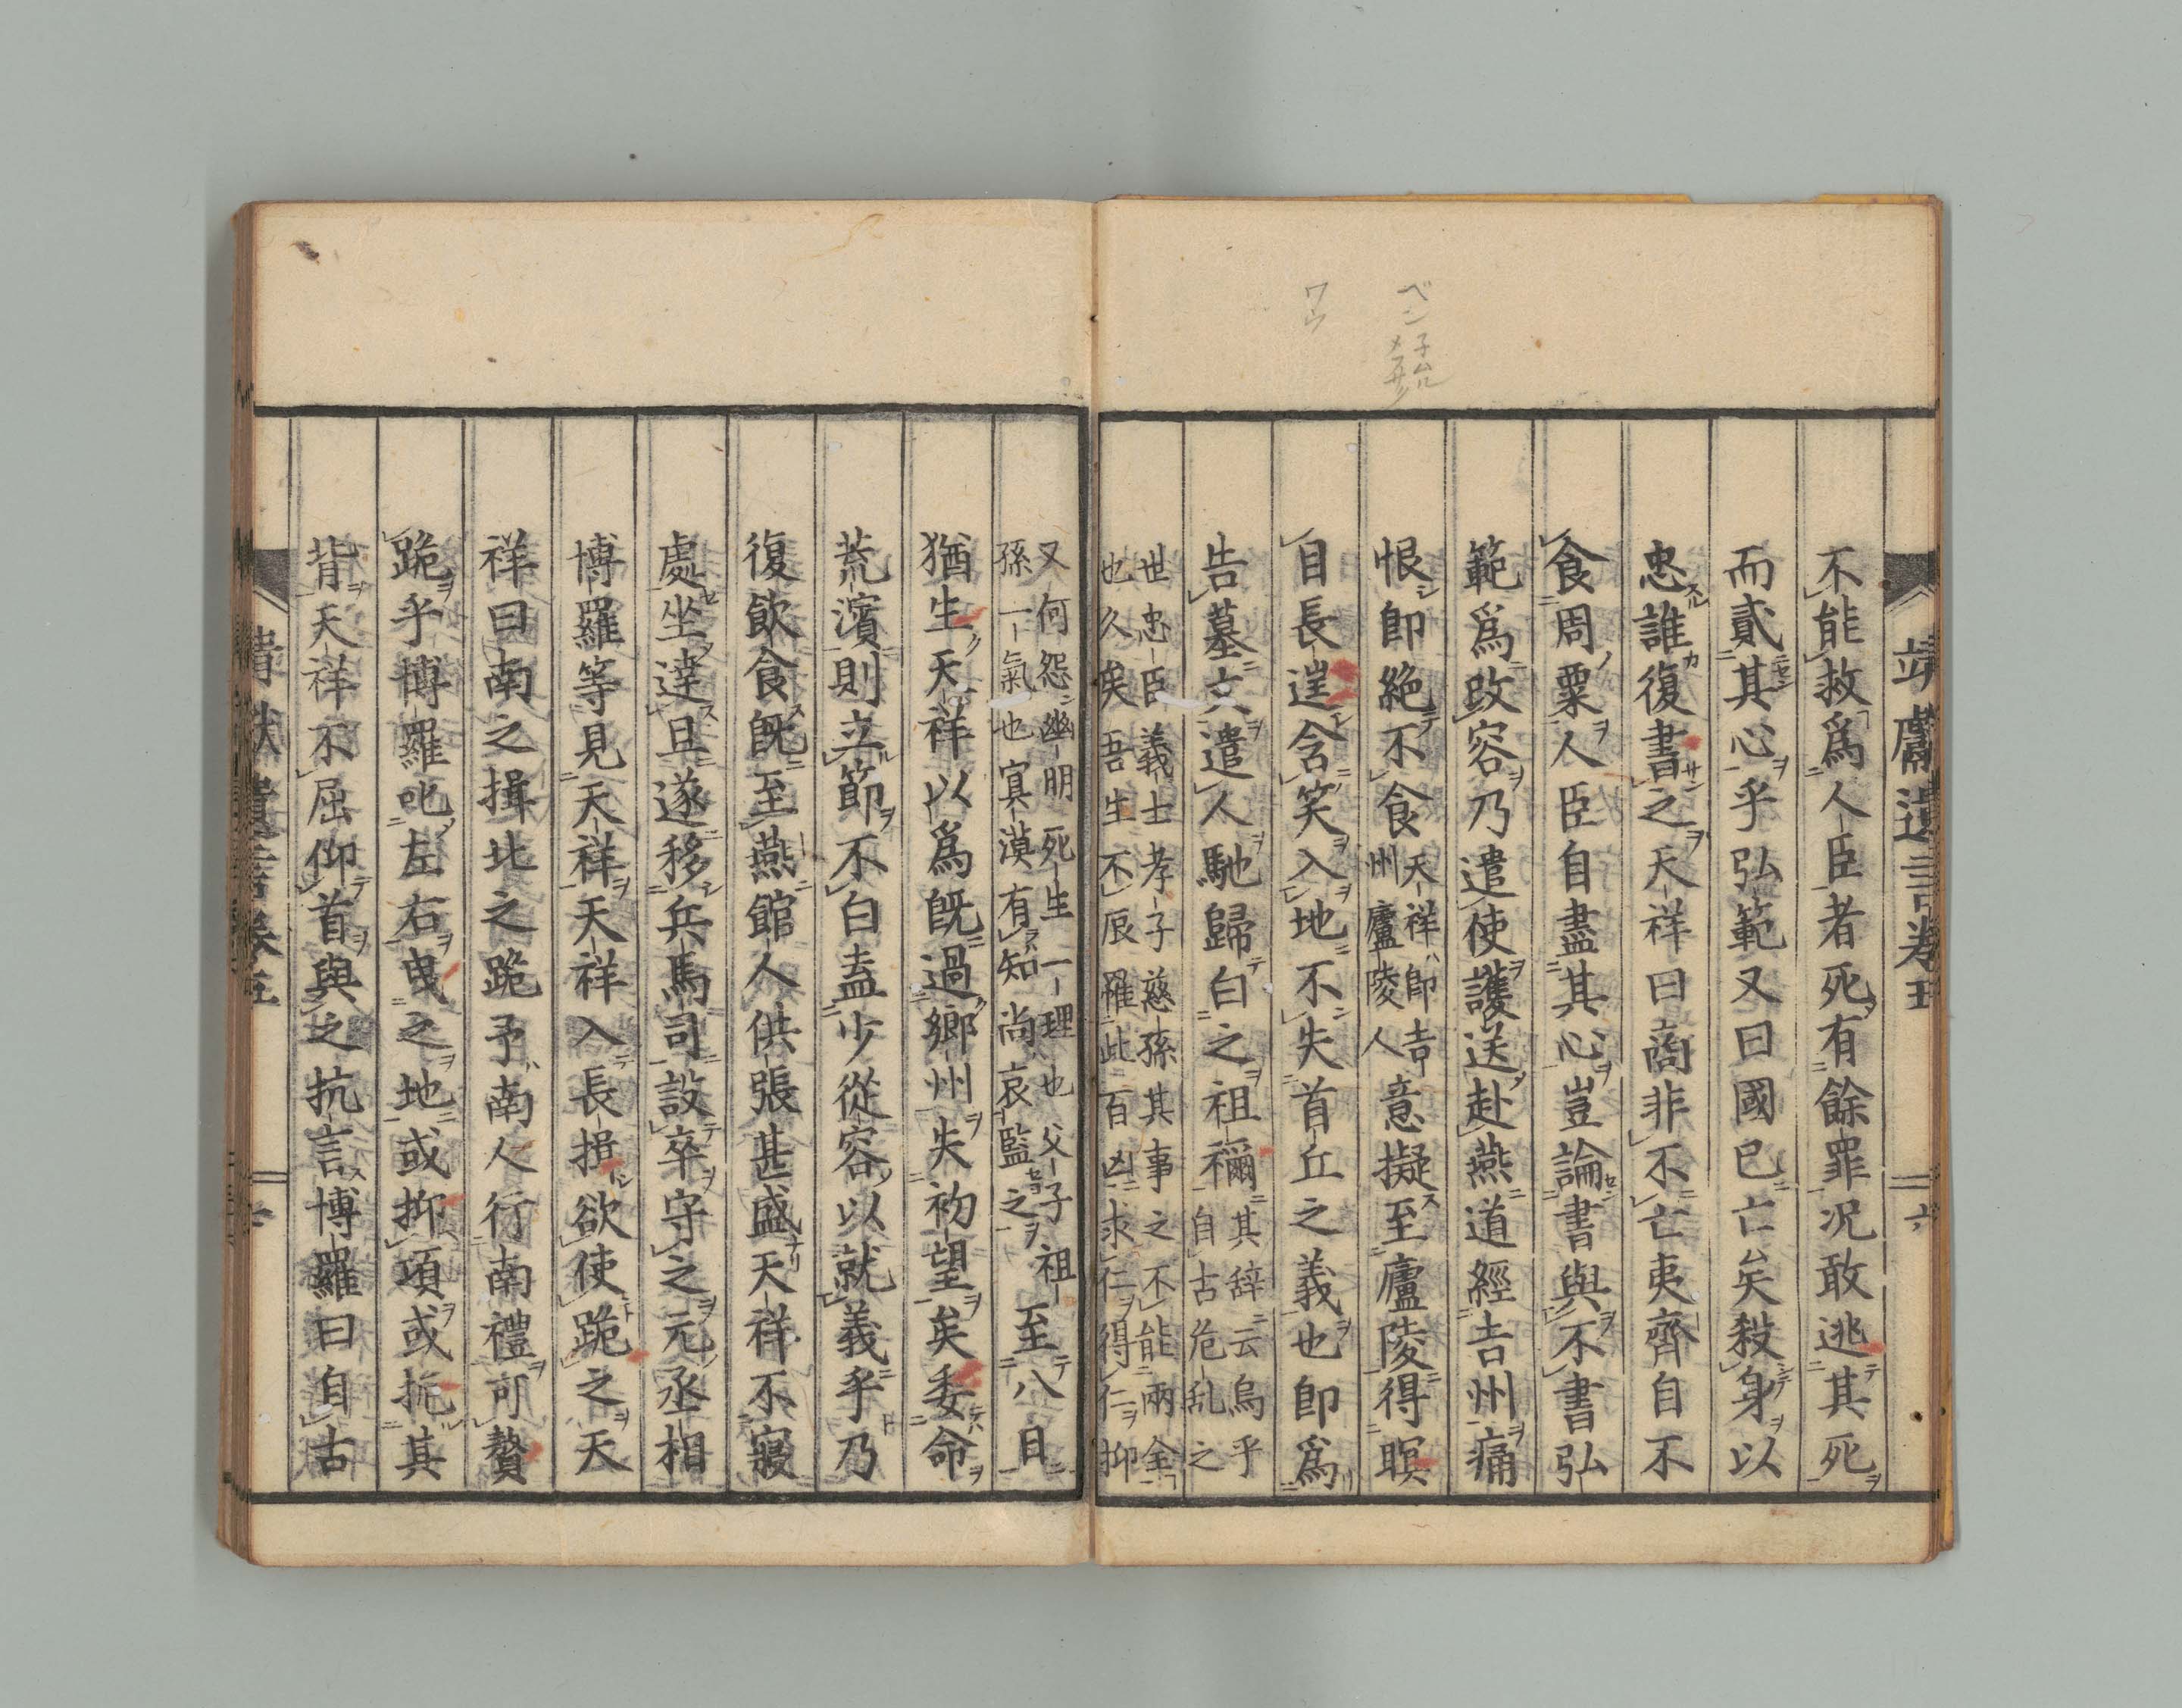 靖獻遺言卷五
六
不能救爲人臣者死有餘罪況敢逃其死
而貳其心乎弘範又曰國已亡矣殺身以
忠誰復書之天祥曰商非不亡夷齊自不
食周粟人臣自盡其心豈論書與不書弘
範爲改容乃遣使護送赴燕道經吉州痛
恨即絕不食天祥即吉州廬陵人意擬至廬陵得瞑
目長逞含笑入地不失首丘之義也即爲
告墓文遣人馳歸白之祖禰其辭云烏乎自古危乱之
世忠臣義士孝子慈孫其事之不能兩全也久矣吾生不辰罹此百凶求仁得仁抑
又何怨幽明死生一理也父子祖孫一氣也寞漠有知尚哀監之至八日
猶生天祥以爲既過鄉州失初望矣委命
荒濱則立節不白盍少從容以就義乎乃
復飮食既至燕館人供張甚盛天祥不寢
處坐達旦遂移兵馬司設卒守之元丞相
博羅等見天祥天祥入長揖欲使跪之天
祥曰南之揖北之跪予南人行南禮可贅
跪乎博羅叱左右曳之地或抑項或扼其
背天祥不屈仰首與之抗言博羅曰自古